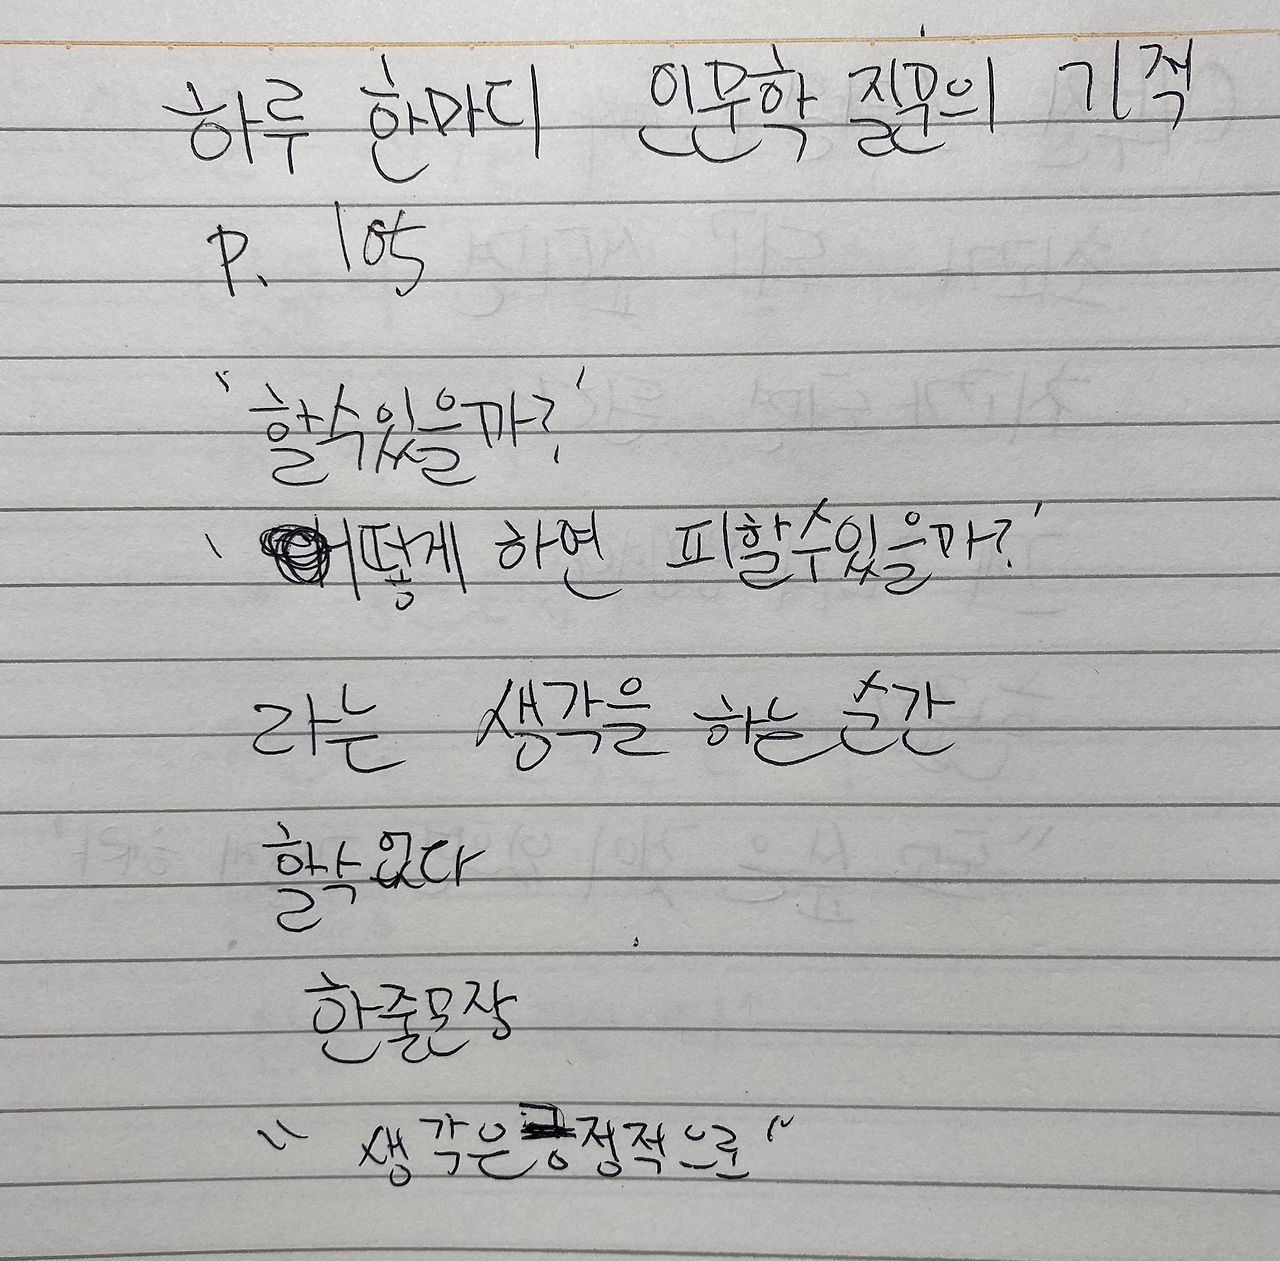 하루 한마디 인문학 질문의 기적
P. 105
'할수있을까?'
'어떻게 하면 피할수있을까?'
라는 생각을 하는 순간
할수 없다
한줄문장
"생각은 긍정적으로"